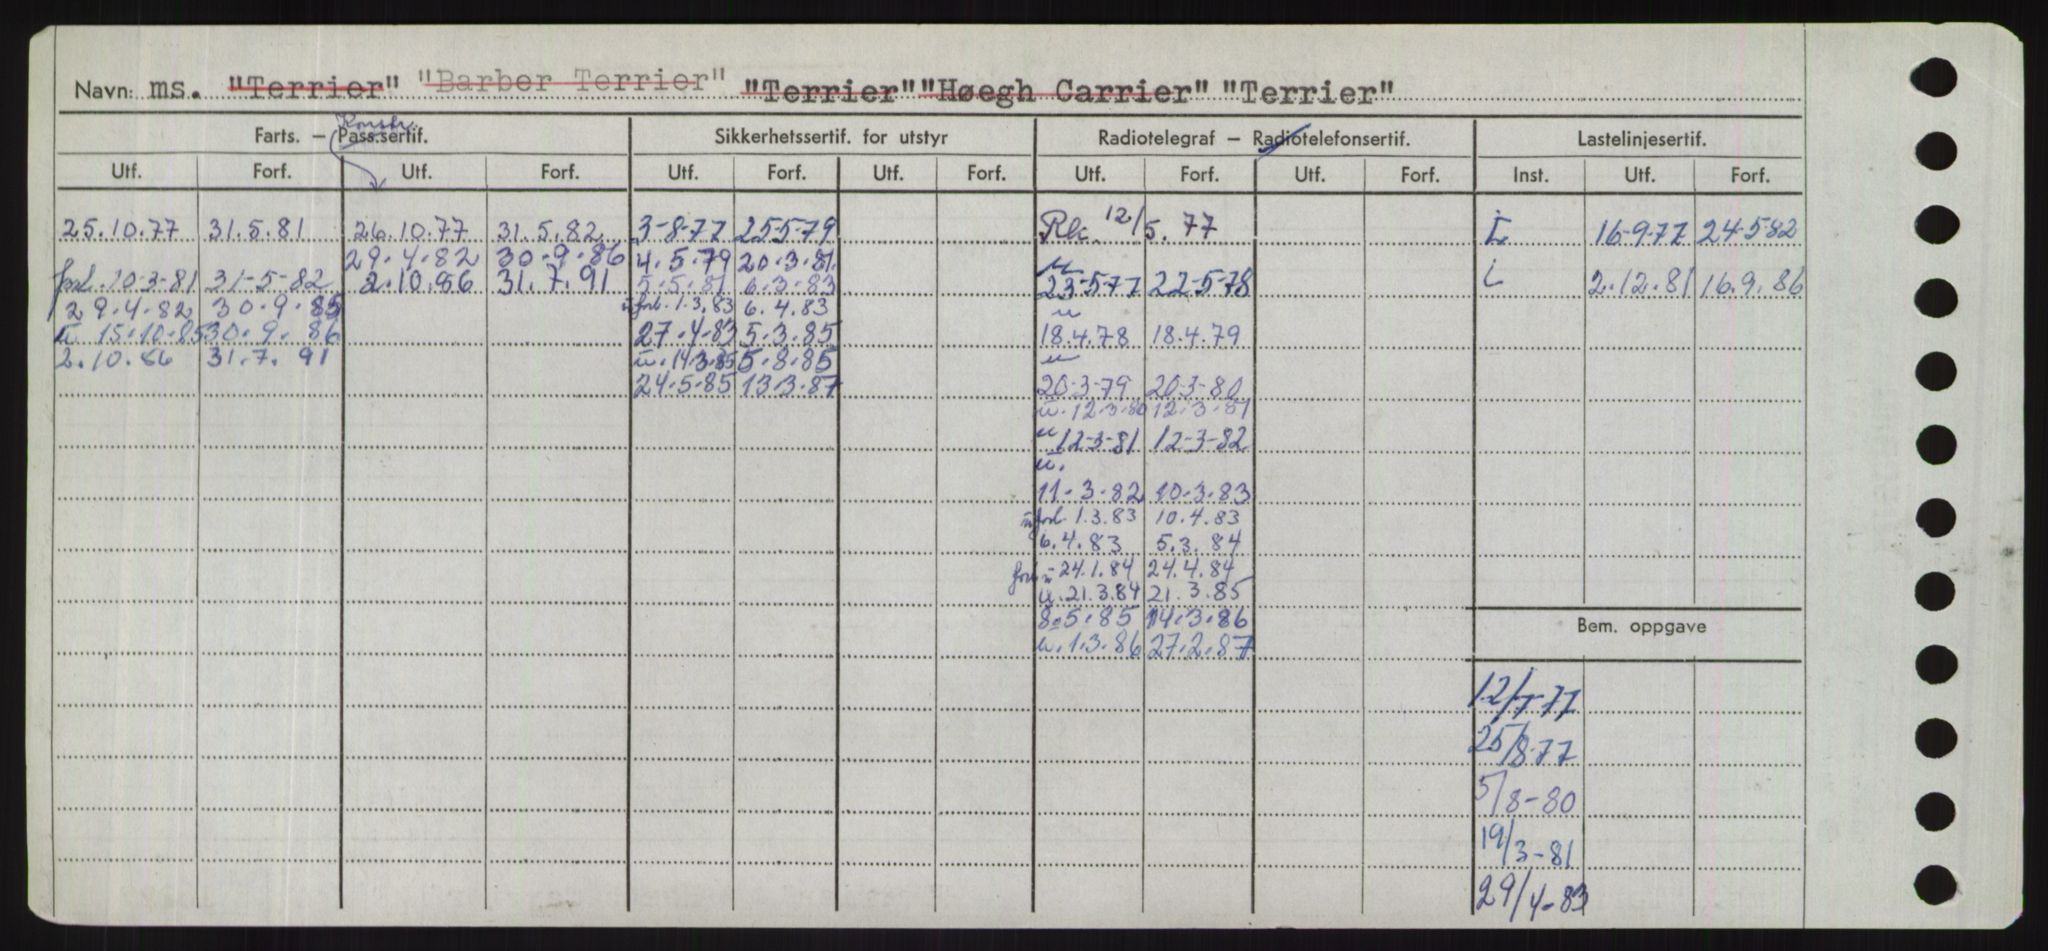 Navn: ms. "Terrier" "Barber Terrier" "Terrier" "Høegh Carrier" "Terrier"
Konstr.
Farts. — Pass.sertif. Sikkerhetssertif. for utstyr Radiotelegraf — Radiotelefonsertif. Lastelinjesertif.
Utf. Forf. Utf. Forf. Utf. Forf. Utf. Forf. Utf. Forf. Utf. Forf. Inst. Utf. Forf.
25.10.77 31.5.81 26.10.77 31.5.82 3-8-77 25-5-79 Rk. 12/5.77 I 16-9-77 24-5-82
29.4.82 30.9.86 4.5.79 20.3.81
forl. 10-3-81 31-5-82 2.10.86 31.7.91 5-5-81 6-3-83 u 23-5-77 22-5-78 L 2.12.81 16.9.86
29.4.82 30.9.85 u forl. 1.3.83 6.4.83
u 15.10.85 30.9.86 27.4.83 5.3.85 u 18.4.78 18.4.79
2.10.86 31.7.91 u. 14.3.85 5.8.85
24.5.85 13.3.87 u 20-3-79 20-3-80
u. 12.3.80 12.3.81
u 12-3-81 12-3-82
u.
11.3.82 10.3.83
u forl. 1.3.83 10.4.83
6.4.83 5.3.84
forl. u 24.1.84 24.4.84
u. 21.3.84 21.3.85
8.5.85 14.3.86
Bem. oppgave
u. 1.3.86 27.2.87
12/7-77
25/8-77
5/8-80
19/3-81
29/4-83